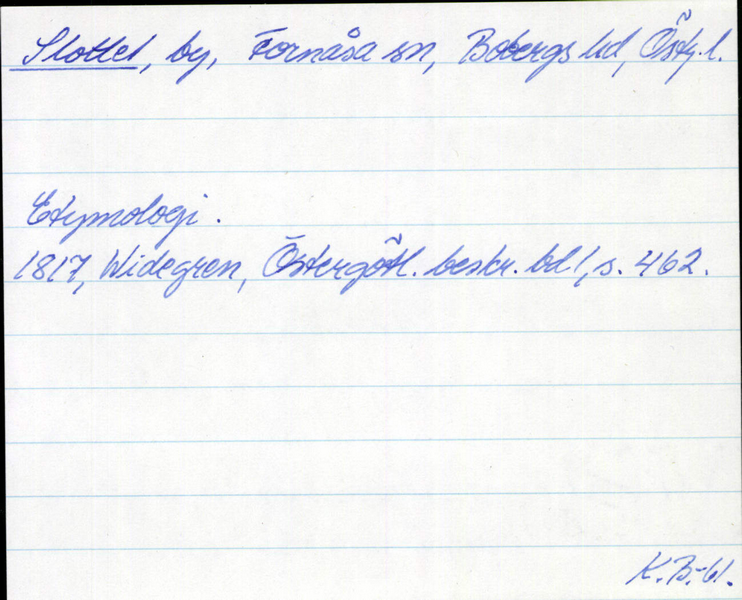 Slottet, by, Fornåsa sn, Bobergs hd, Östg. l.
Etymologi.
1817, Widegren, Östergötl. beskr. bd 1, s. 462.
K.B-61.